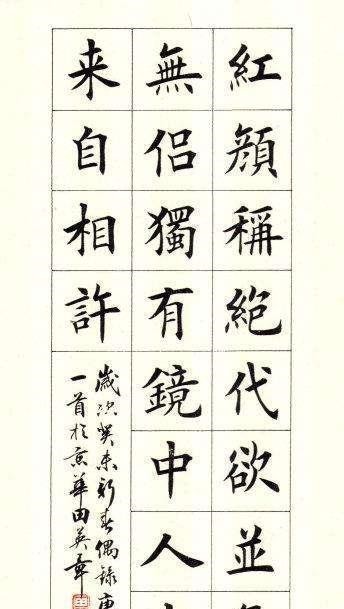 紅顔稱絕代欲並
無侶獨有鏡中人
来自相許
歲次癸未新春偶錄唐
一首於京華田英章